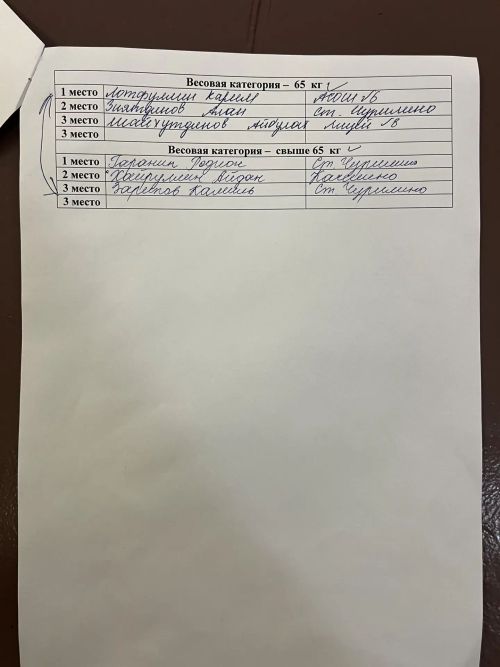 Весовая категория – 65 кг
1 место Лотфуллин Карим АСОШ №6
2 место Зиятдинов Алан Ст. Чурилино
3 место Шайхутдинов Айбулат лицей
3 место
Весовая категория – свыше 65 кг
1 место Гаранин Родион Ст. Чурилино
2 место Хайруллин Айдан
3 место Зарипов Камиль Ст. Чурилино
3 место